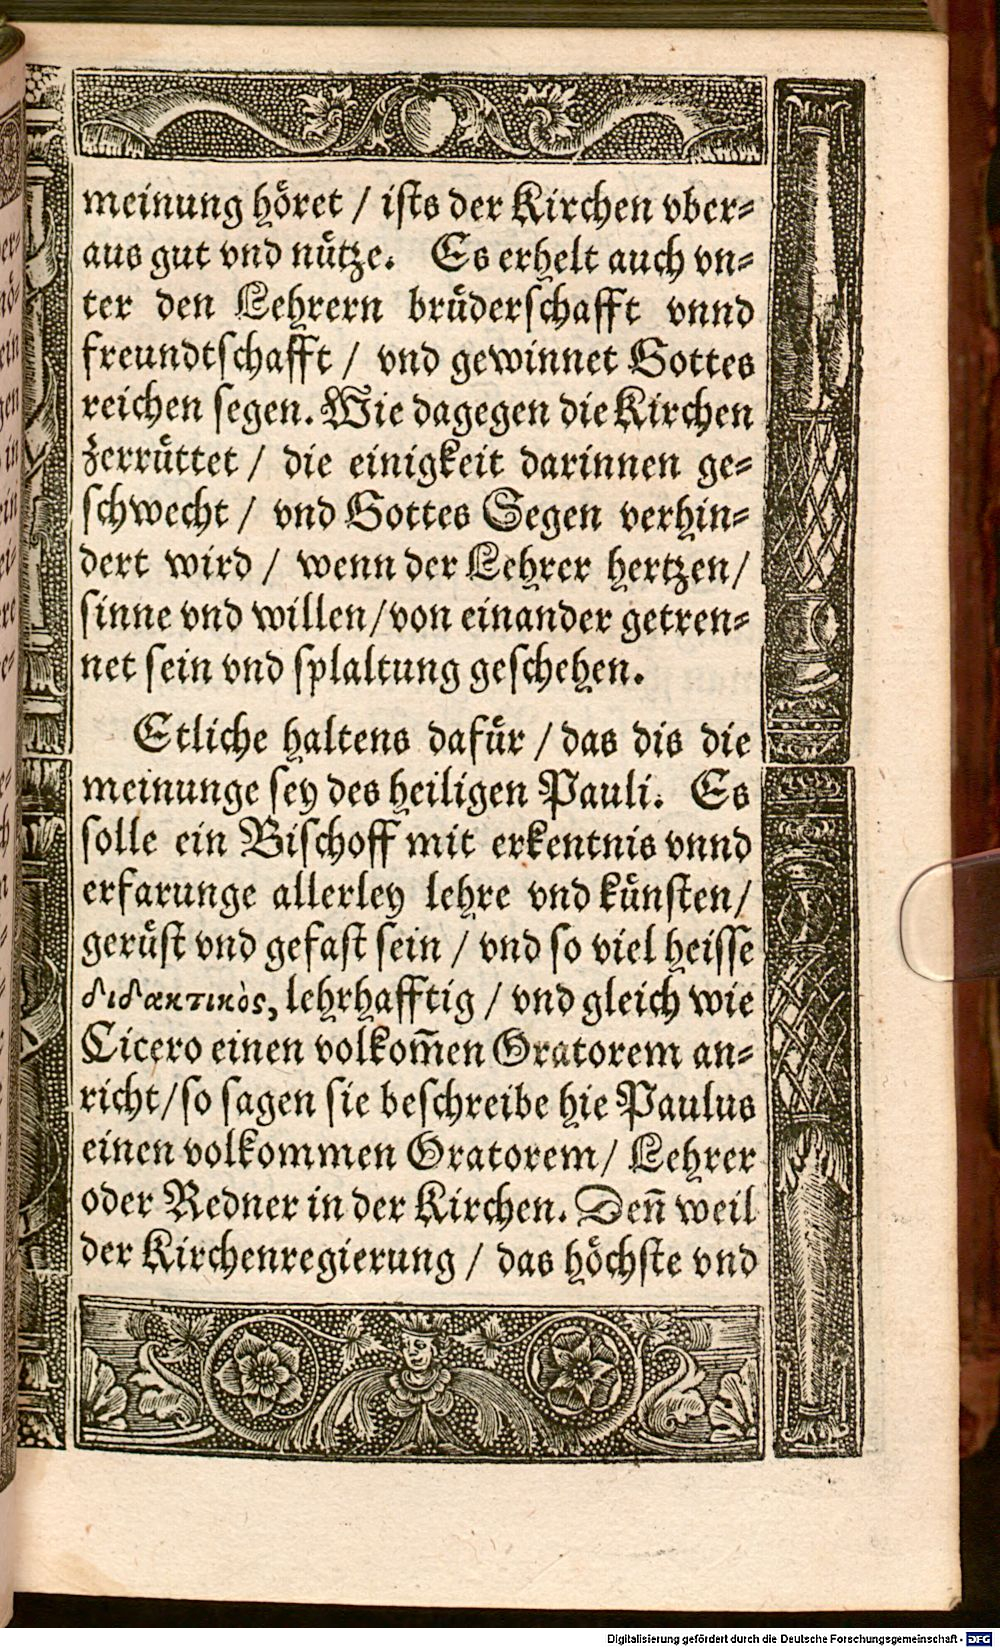 meinung höret / ists der Kirchen vber-
aus gut vnd nütze. Es erhelt auch vn-
ter den Lehrern brüderschafft vnnd
freundtschafft / vnd gewinnet Gottes
reichen segen. Wie dagegen die Kirchen
zerrüttet / die einigkeit darinnen ge-
schwecht / vnd Gottes Segen verhin-
dert wird / wenn der Lehrer hertzen /
sinne vnd willen / von einander getren-
net sein vnd splaltung geschehen.
Etliche haltens dafür / das dis die
meinunge sey des heiligen Pauli. Es
solle ein Bischoff mit erkentnis vnnd
erfarunge allerley lehre vnd künsten /
gerüst vnd gefast sein / vnd so viel heisse
διδακτικὸς, lehrhafftig / vnd gleich wie
Cicero einen volkom̅en Oratorem an-
richt / so sagen sie beschreibe hie Paulus
einen volkommen Oratorem / Lehrer
oder Redner in der Kirchen. Den̅ weil
der Kirchenregierung / das höchste vnd
Digitalisierung gefördert durch die Deutsche Forschungsgemeinschaft - DFG